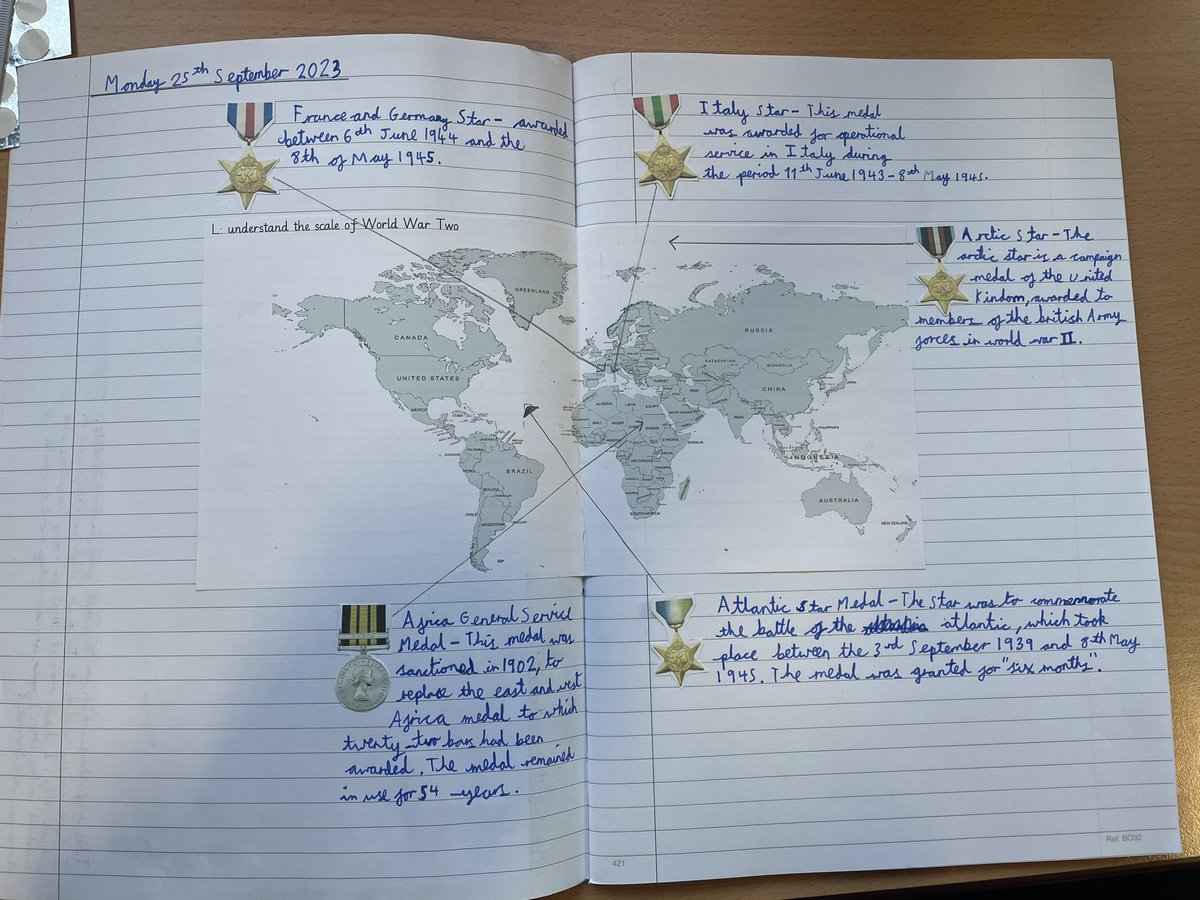 Monday 25th September 2023
France and Germany Star - awarded
between 6th June 1944 and the
8th of May 1945.
Italy Star - This medal
was awarded for operational
service in Italy during
the period 11th June 1943 - 8th May 1945.
L: understand the scale of World War Two
Arctic Star - The
arctic star is a campaign
medal of the United
Kindom, awarded to
members of the british Army
forces in world war II.
GREENLAND
CANADA
UNITED STATES
MEXICO
CUBA
BRAZIL
PERU
BOLIVIA
CHILE
ARGENTINA
RUSSIA
KAZAKHSTAN
MONGOLIA
CHINA
TURKEY
IRAN
INDIA
ALGERIA
LIBYA
EGYPT
MALI
NIGER
SUDAN
ETHIOPIA
SOMALIA
SOUTH AFRICA
INDONESIA
AUSTRALIA
NEW ZEALAND
Africa General Service
Medal - This medal was
sanctioned in 1902, to
replace the east and west
Africa medal to which
twenty-two bars had been
awarded. The medal remained
in use for 54 years.
Atlantic Star Medal - The Star was to commemorate
the battle of the atlantic, which took
place between the 3rd September 1939 and 8th May
1945. The medal was granted for "six months".
421
Ref: BO32